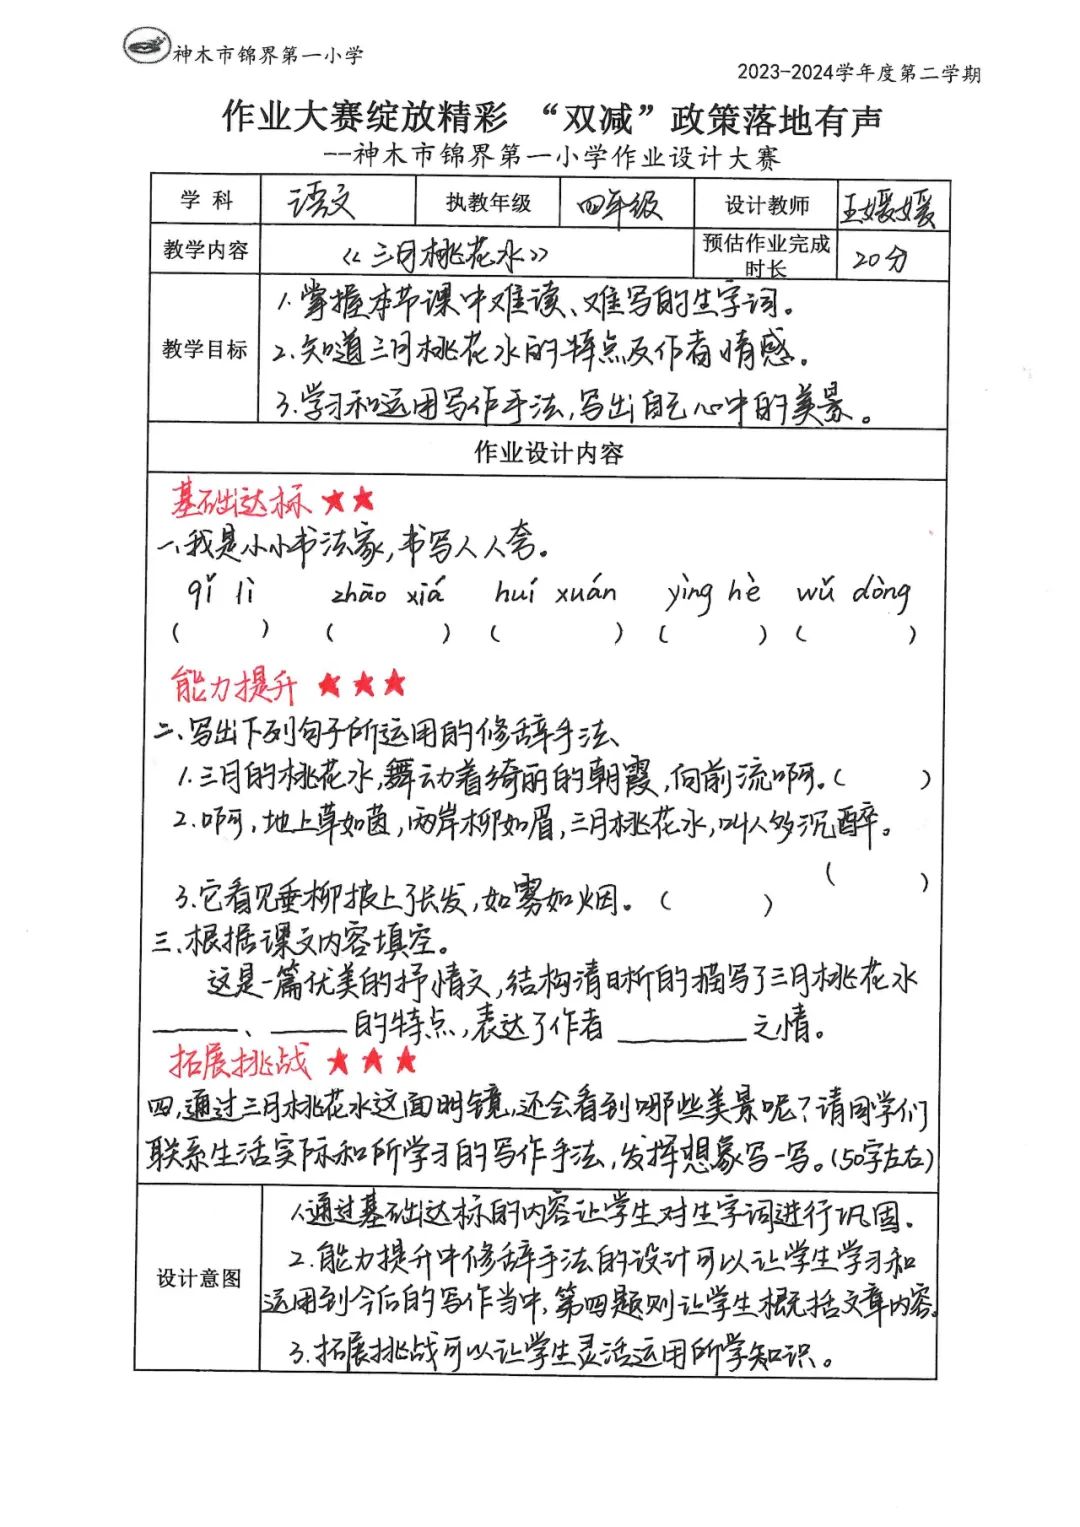 神木市锦界第一小学
2023-2024学年度第二学期
作业大赛绽放精彩 “双减”政策落地有声
--神木市锦界第一小学作业设计大赛
学科 语文 执教年级 四年级 设计教师 王媛媛
教学内容 《三月桃花水》 预估作业完成时长 20分
教学目标
1.掌握本节课中难读、难写的生字词。
2.知道三月桃花水的特点及作者情感。
3.学习和运用写作手法,写出自己心中的美景。
作业设计内容
基础达标 ★★
一、我是小小书法家,书写人人夸。
qǐ lì zhāo xiá huí xuán yìng hè wǔ dòng
( ) ( ) ( ) ( ) ( )
能力提升 ★★★
二、写出下列句子所运用的修辞手法、
1.三月的桃花水,舞动着绮丽的朝霞,向前流啊。( )
2.啊,地上草如茵,两岸柳如眉,三月桃花水,叫人多沉醉。
( )
3.它看见垂柳披上了长发,如雾如烟。( )
三、根据课文内容填空。
这是一篇优美的抒情文,结构清晰的描写了三月桃花水
______、______的特点,表达了作者________之情。
拓展挑战 ★★★
四,通过三月桃花水这面明镜,还会看到哪些美景呢?请同学们
联系生活实际和所学习的写作手法,发挥想象写一写。(50字左右)
设计意图
1.通过基础达标的内容让学生对生字词进行巩固.
2.能力提升中修辞手法的设计可以让学生学习和
运用到今后的写作当中,第四题则让学生概括文章内容。
3.拓展挑战可以让学生灵活运用所学知识。